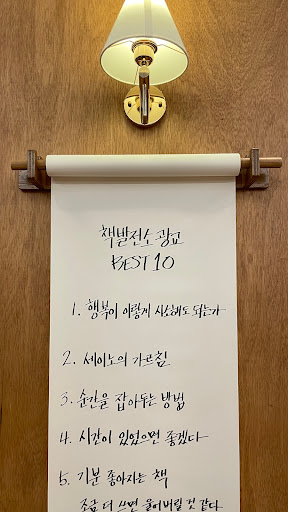 책발전소 광교
BEST 10
1. 행복이 이렇게 사소해도 되는가
2. 세이노의 가르침
3. 순간을 잡아두는 방법
4. 시간이 있었으면 좋겠다
5. 기분 좋아지는 책
조금 더 쓰면 울어버릴 것 같다